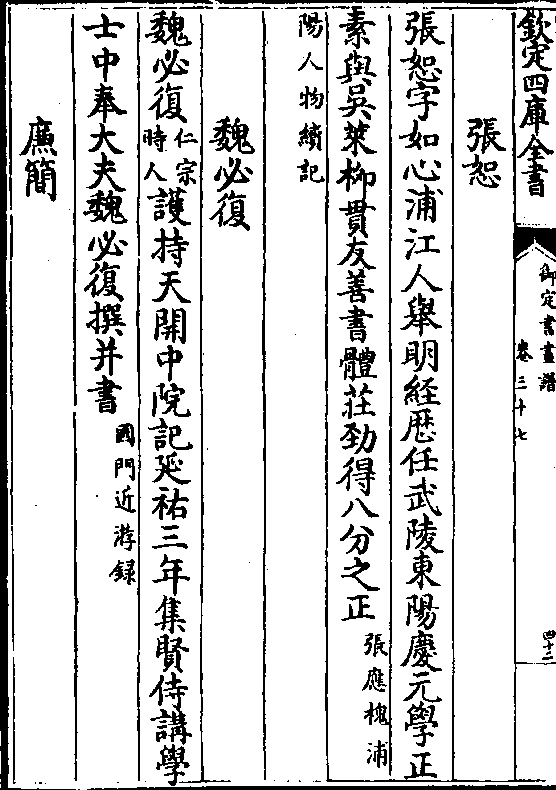 欽定四庫全書
御定書畫譜
卷三十七
四十二
張恕
張恕字如心浦江人舉明經歷任武陵東陽慶元學正
素與吳萊柳貫友善書體莊勁得八分之正張應槐浦
陽人物續記
魏必復
魏必復仁宗時人護持天開中院記延祐三年集賢侍講學
士中奉大夫魏必復撰并書國門近游録
廉簡